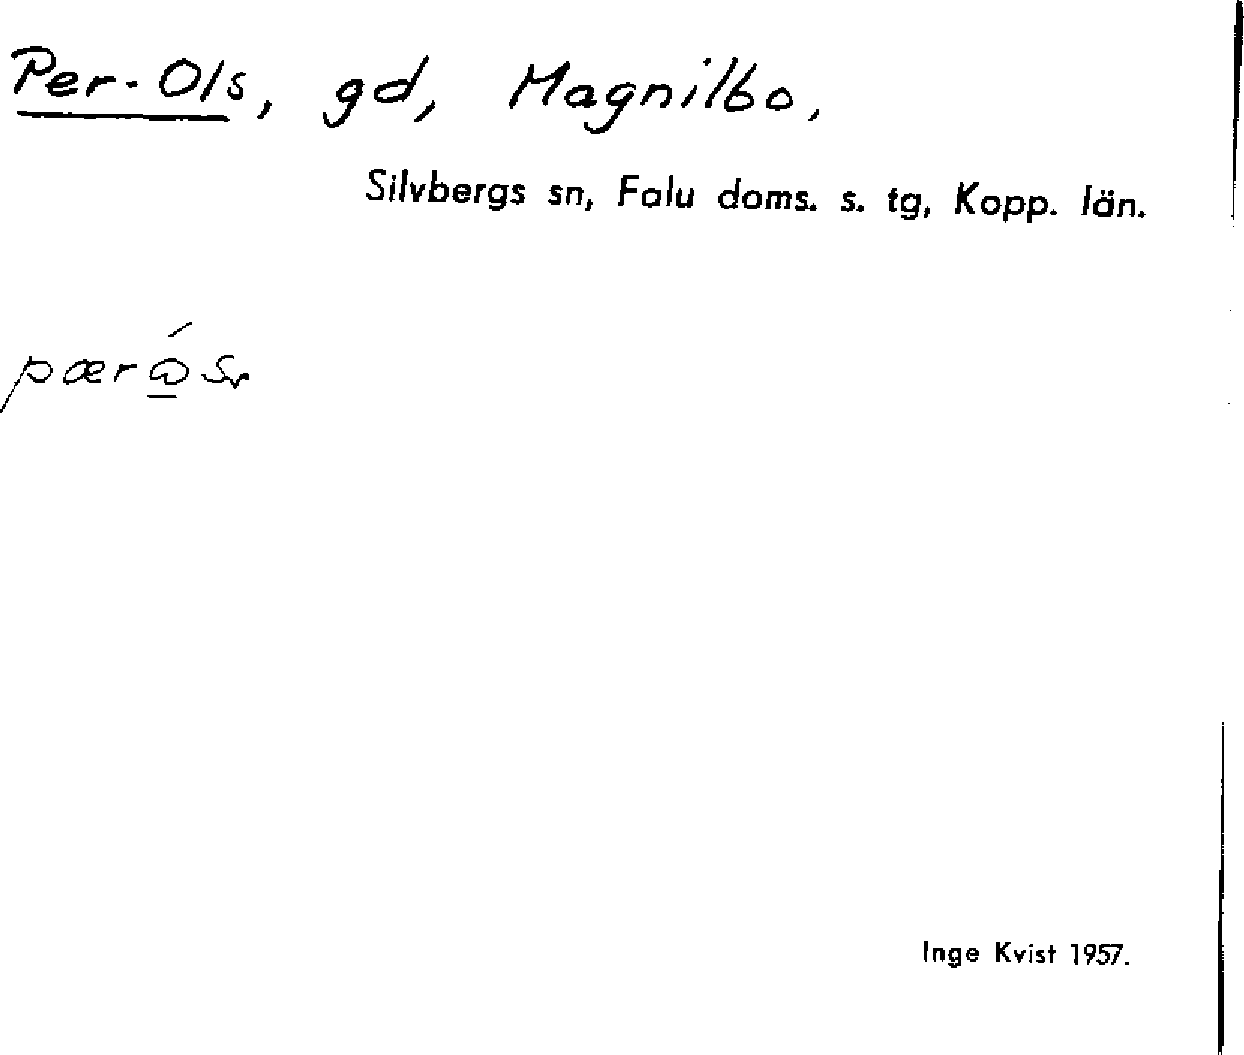 Per-Ols, gd, Magnilbo,
Silvbergs sn, Falu doms. s. tg, Kopp. län.
Inge Kvist 1957.